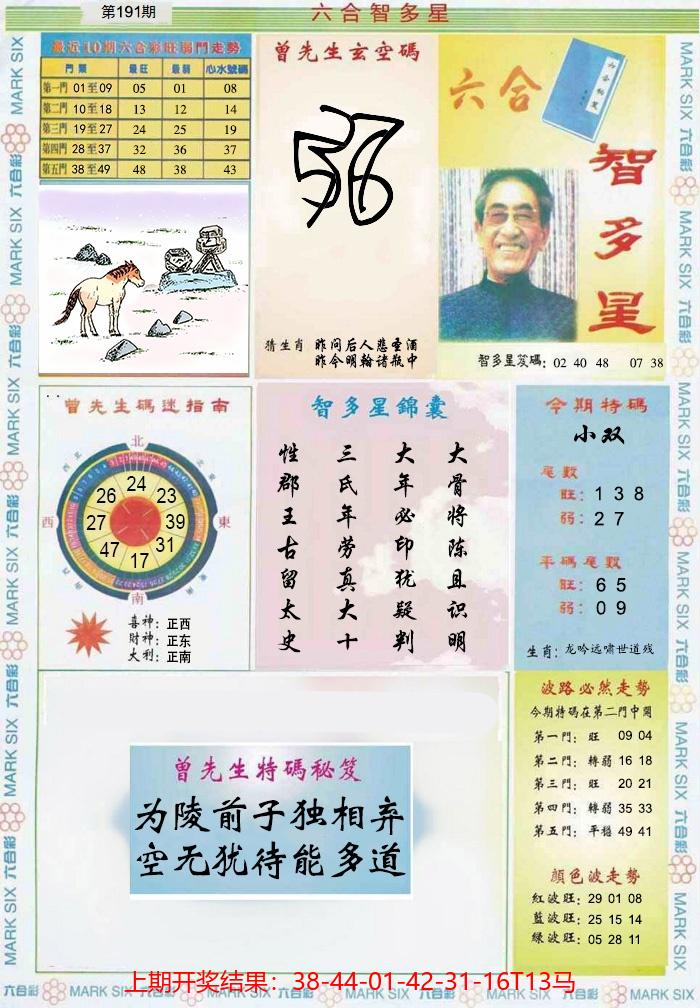 第191期
六合智多星
最近10期六合彩旺弱門走勢
門類 最旺 最弱 心水號碼
第一門 01至09 05 01 08
第二門 10至18 13 12 14
第三門 19至27 24 25 19
第四門 28至37 32 36 37
第五門 38至49 48 38 43
曾先生玄空碼
猜生肖 昨问后人悲圣酒
昨今明翰诸瓶中
六合
智多星
智多星笈碼: 02 40 48 07 38
曾先生碼迷指南
北
西
東
南
24
26
23
27
39
47
31
17
喜神: 正西
财神: 正东
大利: 正南
智多星錦囊
性郡王古留太史
三氏年劳真大十
大年必印犹疑判
大骨将陈且识明
今期特碼
小双
尾數
旺: 1 3 8
弱: 2 7
平碼尾數
旺: 6 5
弱: 0 9
生肖: 龙吟远啸世道残
曾先生特碼秘笈
为陵前子独相弃
空无犹待能多道
波路必然走勢
今期特碼在第二門中開
第一門: 旺 09 04
第二門: 轉弱 16 18
第三門: 旺 20 21
第四門: 轉弱 35 33
第五門: 平穩 49 41
顏色波走勢
紅波旺: 29 01 08
藍波旺: 25 15 14
綠波旺: 05 28 11
上期开奖结果：38-44-01-42-31-16T13马
MARK SIX 六合彩